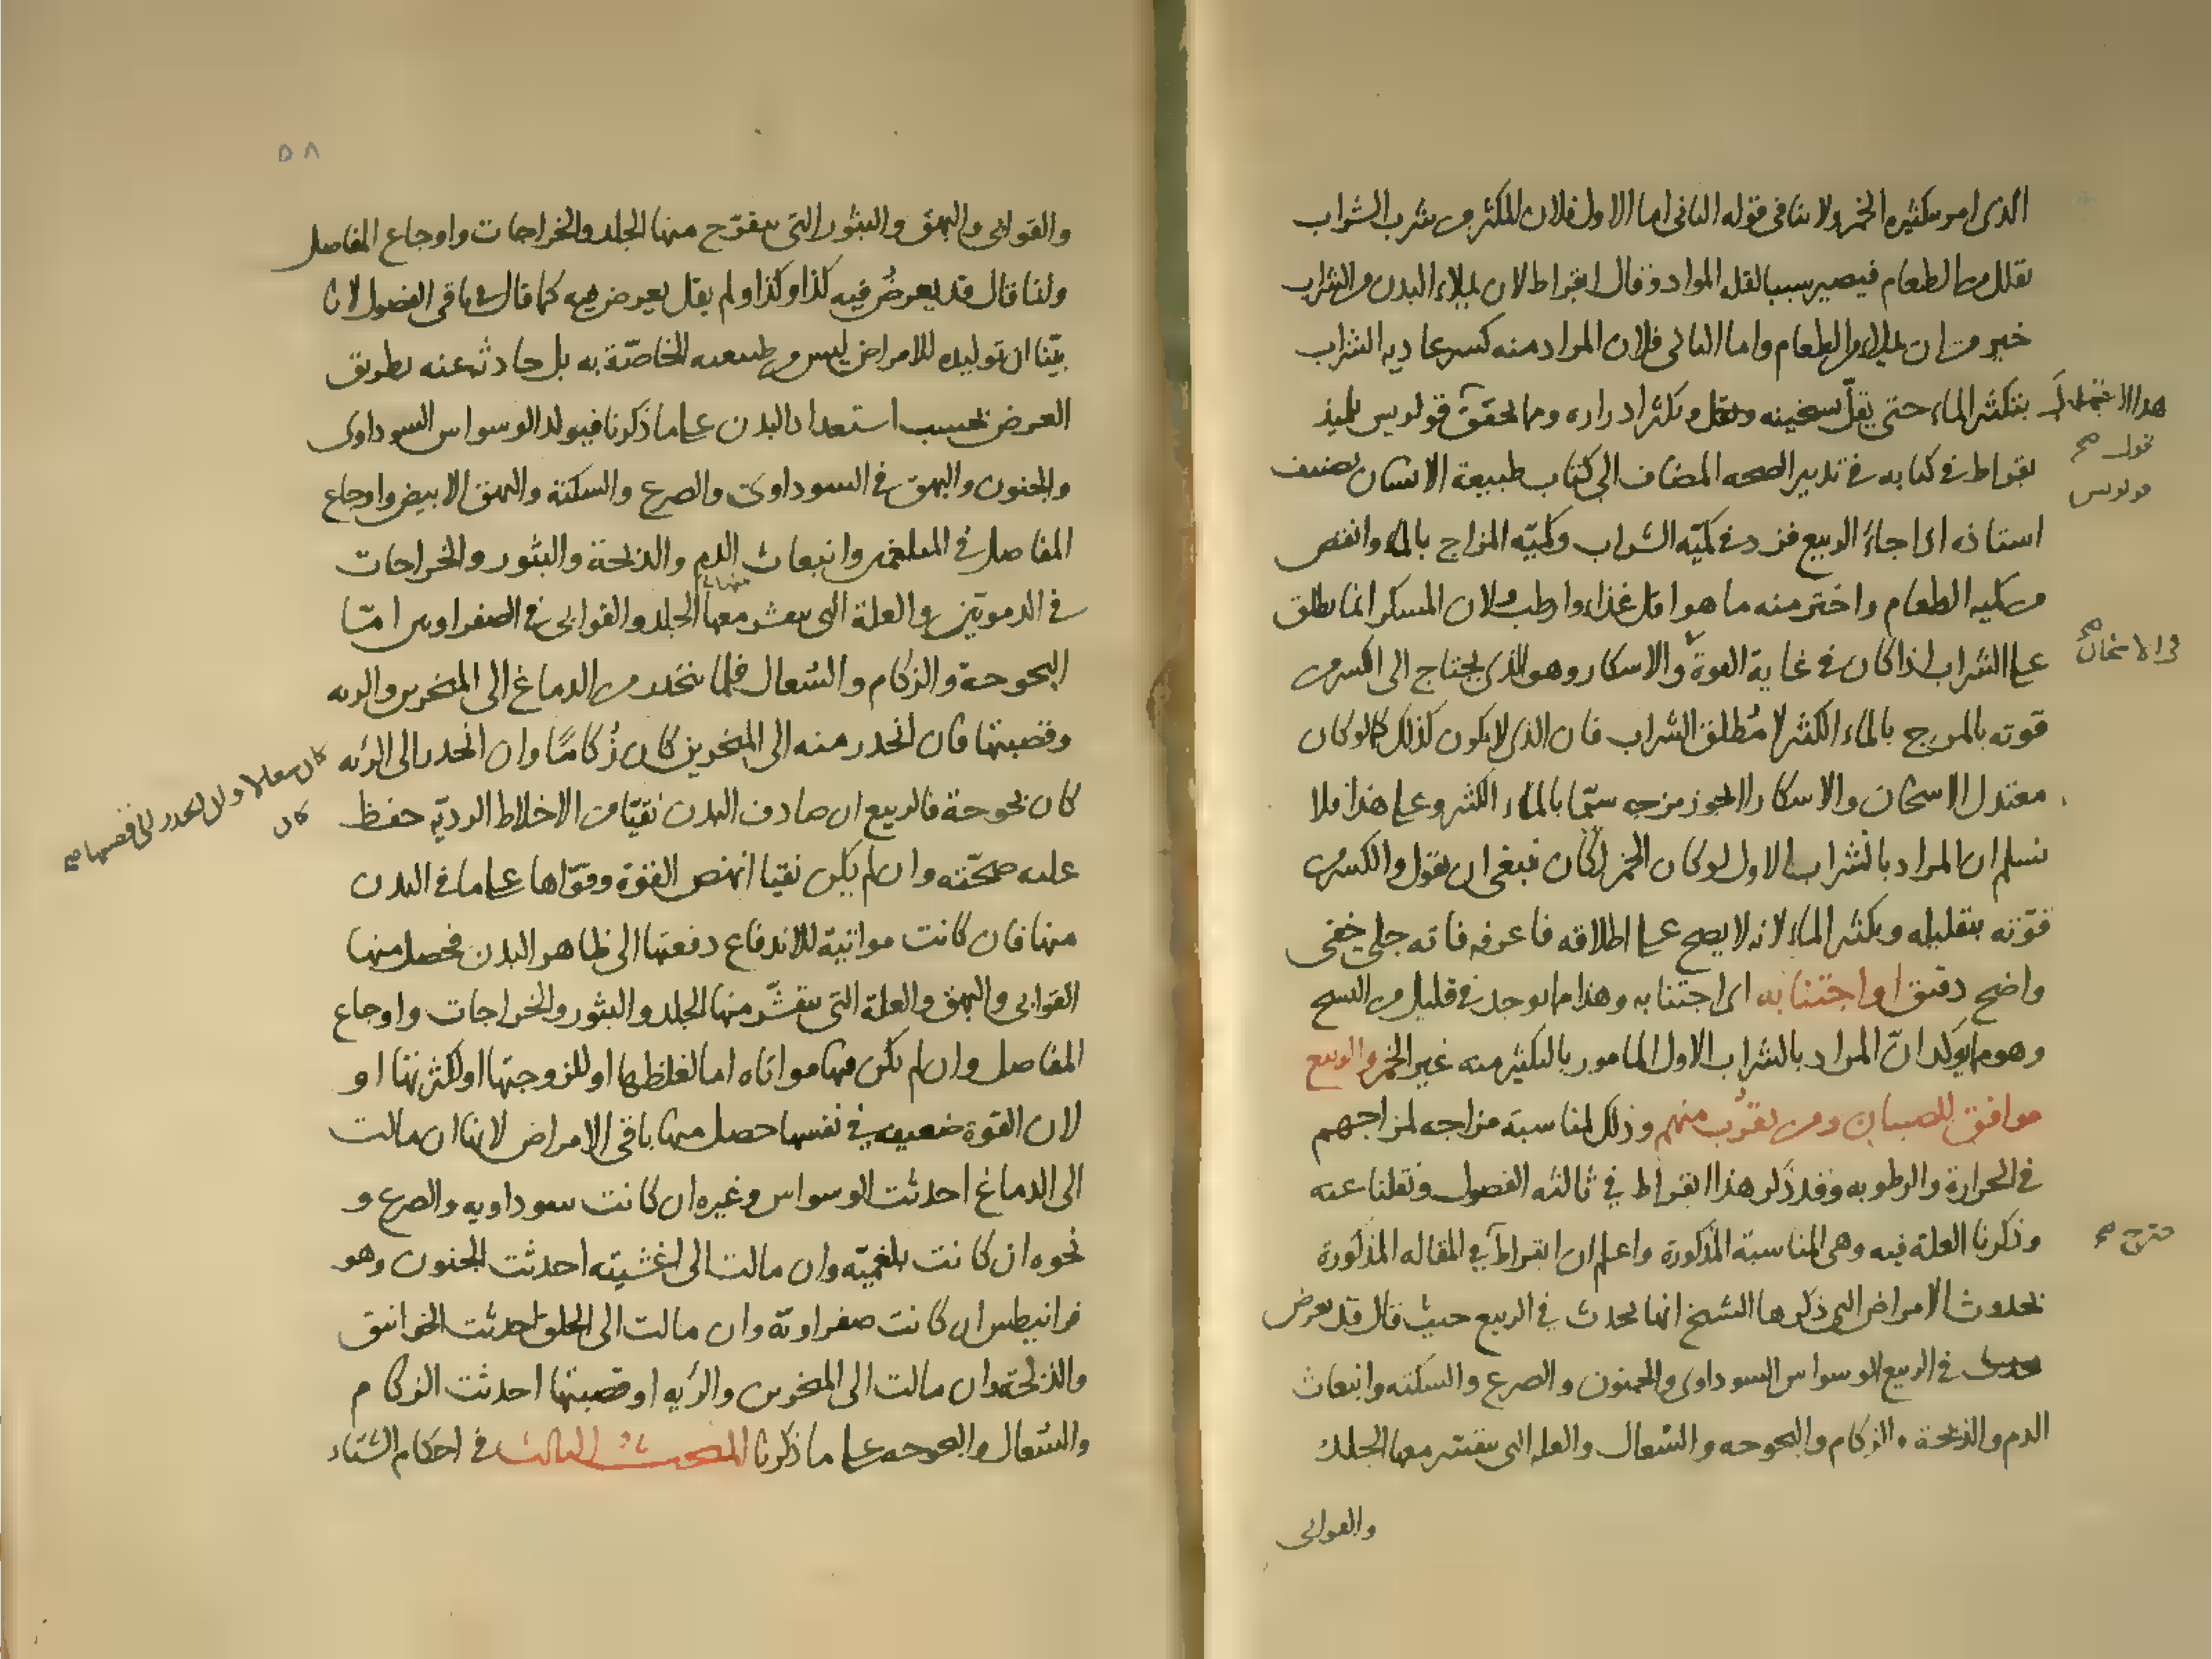 الذى امر بتكثيره الخمر ولا ينافى قوله الثانى اما الاول فلان المكثر من شرب الشراب
يقلل من الطعام فيصير سببا لقلة المواد وقال ابقراط لان يملاء البدن من الشراب
خير من ان يملاء من الطعام واما الثانى فلان المراد منه كسر عادية الشراب
بتكثير الماء حتى يقلّ تسخينه ويكثر ادراره ومما يحقق قولويس تلميذ
بقراط فى كتابه فى تدبير الصحه المضاف الى كتاب طبيعة الانسان تصنيف
استاذه اذا جاء الربيع فزد فى كميّه الشراب وكميّه المزاج بالماء وانقص
من كميه الطعام واختر منه ما هو اقل غذاء وارطب ولان المسكر انما يطلق
على الشراب اذا كان فى غاية القوة والاسكار وهو الذى يحتاج الى الكسر من
قوته بالمزج بالماء الكثير لا مُطلق الشراب فان الذى لا يكون كذلك كما لو كان
معتدل الاسخان والاسكار لا يجوز مزجه سيّما بالماء الكثير وعلى هذا فلا
نسلم ان المراد بالشراب فى الاول لو كان الخمر لكان ينبغى ان يقول والكسر من
قوّته بتقليله وبكثير الماء لانه لا يصح على اطلاقه فاعرفه فانه جلى خفى
واضح دقيق او اجتنابه اى اجتنابه وهذا مما يوجد فى قليل من النسخ
وهو مما يوكد انّ المراد بالشراب الاول المامور بالتكثير منه غير الخمر والربيع
موافق للصبيان ومن يقرُب منهم وذلك لمناسبة مزاجه لمزاجهم
فى الحرارة والرطوبه وقد ذكر هذا ابقراط فى ثالثه الفصول ونقلنا عنه
وذكرنا العلة فيه وهى المناسبة المذكورة واعلم ان ابقراط فى المقاله المذكورة
الامراض التى ذكرها الشيخ انها تحدث فى الربيع حيث قال قد يعرض
فى الربيع الوسواس السوداوى والجنون والصرع والسكته وانبعاث
الدم والذبحة والزكام والبحوحه والسّعال والعله التى يتقشر معها الجلد
والقوابى
هذا الا
قول صح
قولويس
فى الاسخان صح
مزج صح
٥٨
والقوابى والبهق والبثور التى يتفتح منها الجلد والخراجات واوجاع المفاصل
وانما قال قد يعرضُ فيه كذا وكذا ولم يقل يعرض فيه كما قال فى باقى الفصول لانا
بيّنا ان توليده للامراض ليس من طبيعته الخاصّة به بل حادثه عنه بطريق
العرض بحسب استعداد البدن على ما ذكرنا فيولد الوسواس السوداوى
والجنون والبهق فى السوداوىّ والصرع والسكتة والبهق الابيض واوجاع
المفاصل فى البلغمى وانبعاث الدم والذبحة والبثور والخراجات
فى الدمويّين والعلة التى يتقشر معها الجلد والقوابى فى الصفراويين امّا
البحوحة والزكام والسّعال فلما ينحدر من الدماغ الى المنخرين والريه
وقصبتها فان انحدر منه الى المنخرين كان زُكامًا وان انحدر الى الرّئه
كان بحوحة فالربيع ان صادف البدن نقيّا من الاخلاط الرديّه حفظ
عليه صحّته وان لم يكن نقيا انهض القوّة وقوّاها على ما فى البدن
منها فان كانت مواتية للاندفاع دفعتها الى ظاهر البدن فحصل منها
القوابى والبهق والعلة التى يتقشّر منها الجلد والبثور والخراجات واوجاع
المفاصل وان لم تكن فيها مواتاه اما لغلظها او للزوجتها او لكثرتها او
لان القوة ضعيفه فى نفسها حصل منها باقى الامراض لانها ان مالت
الى الدماغ احدثت الوسواس وغيره ان كانت سوداويه والصرع و
نحوه ان كانت بلغميّه وان مالت الى اغشيته احدثت الجنون وهو
فرانيطس ان كانت صفراويّه وان مالت الى الحلق احدثت الخوانيق
والذبحة وان مالت الى المنخرين والرّيه او قصبتها احدثت الزكام
والسّعال والبحوحه على ما ذكرنا المبحث الثالث فى احكام الشتاء
كان سعالا وان انحدر الى قصبتها صح
كان